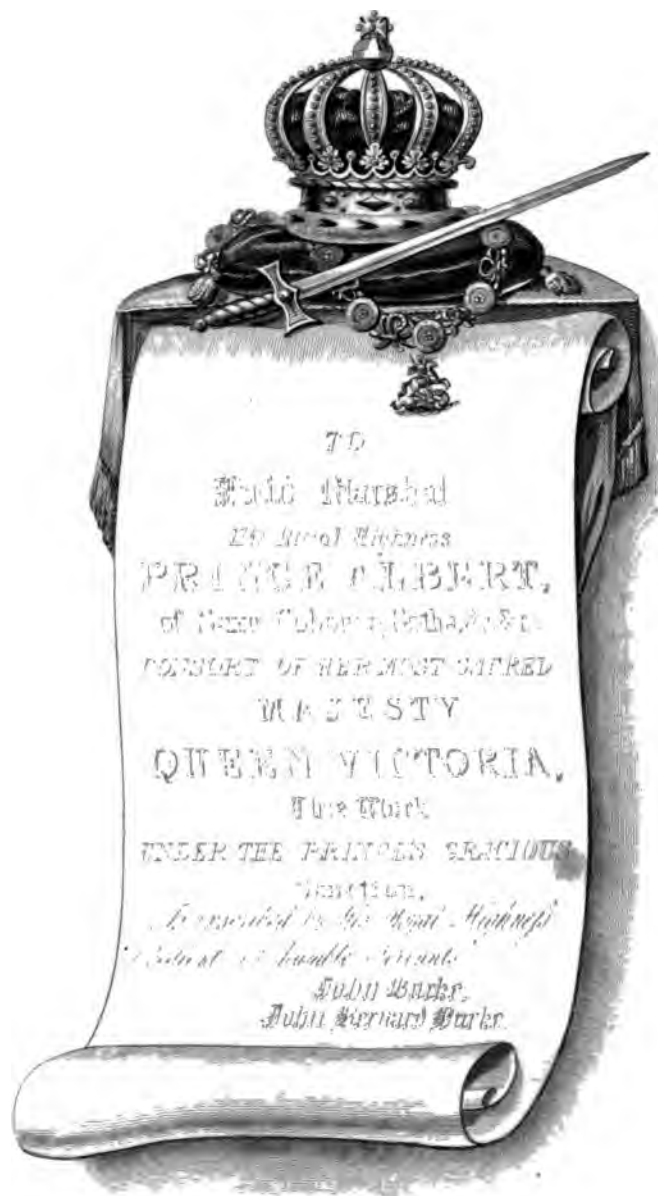 TO
Field Marshal
His Royal Highness
PRINCE ALBERT,
of Saxe Coburg, Gotha, &c. &c.
CONSORT OF HER MOST SACRED
MAJESTY
QUEEN VICTORIA,
This Work
UNDER THE PRINCE'S GRACIOUS
Sanction,
Is inscribed by his Royal Highness'
humble Servants
John Burke,
John Bernard Burke.